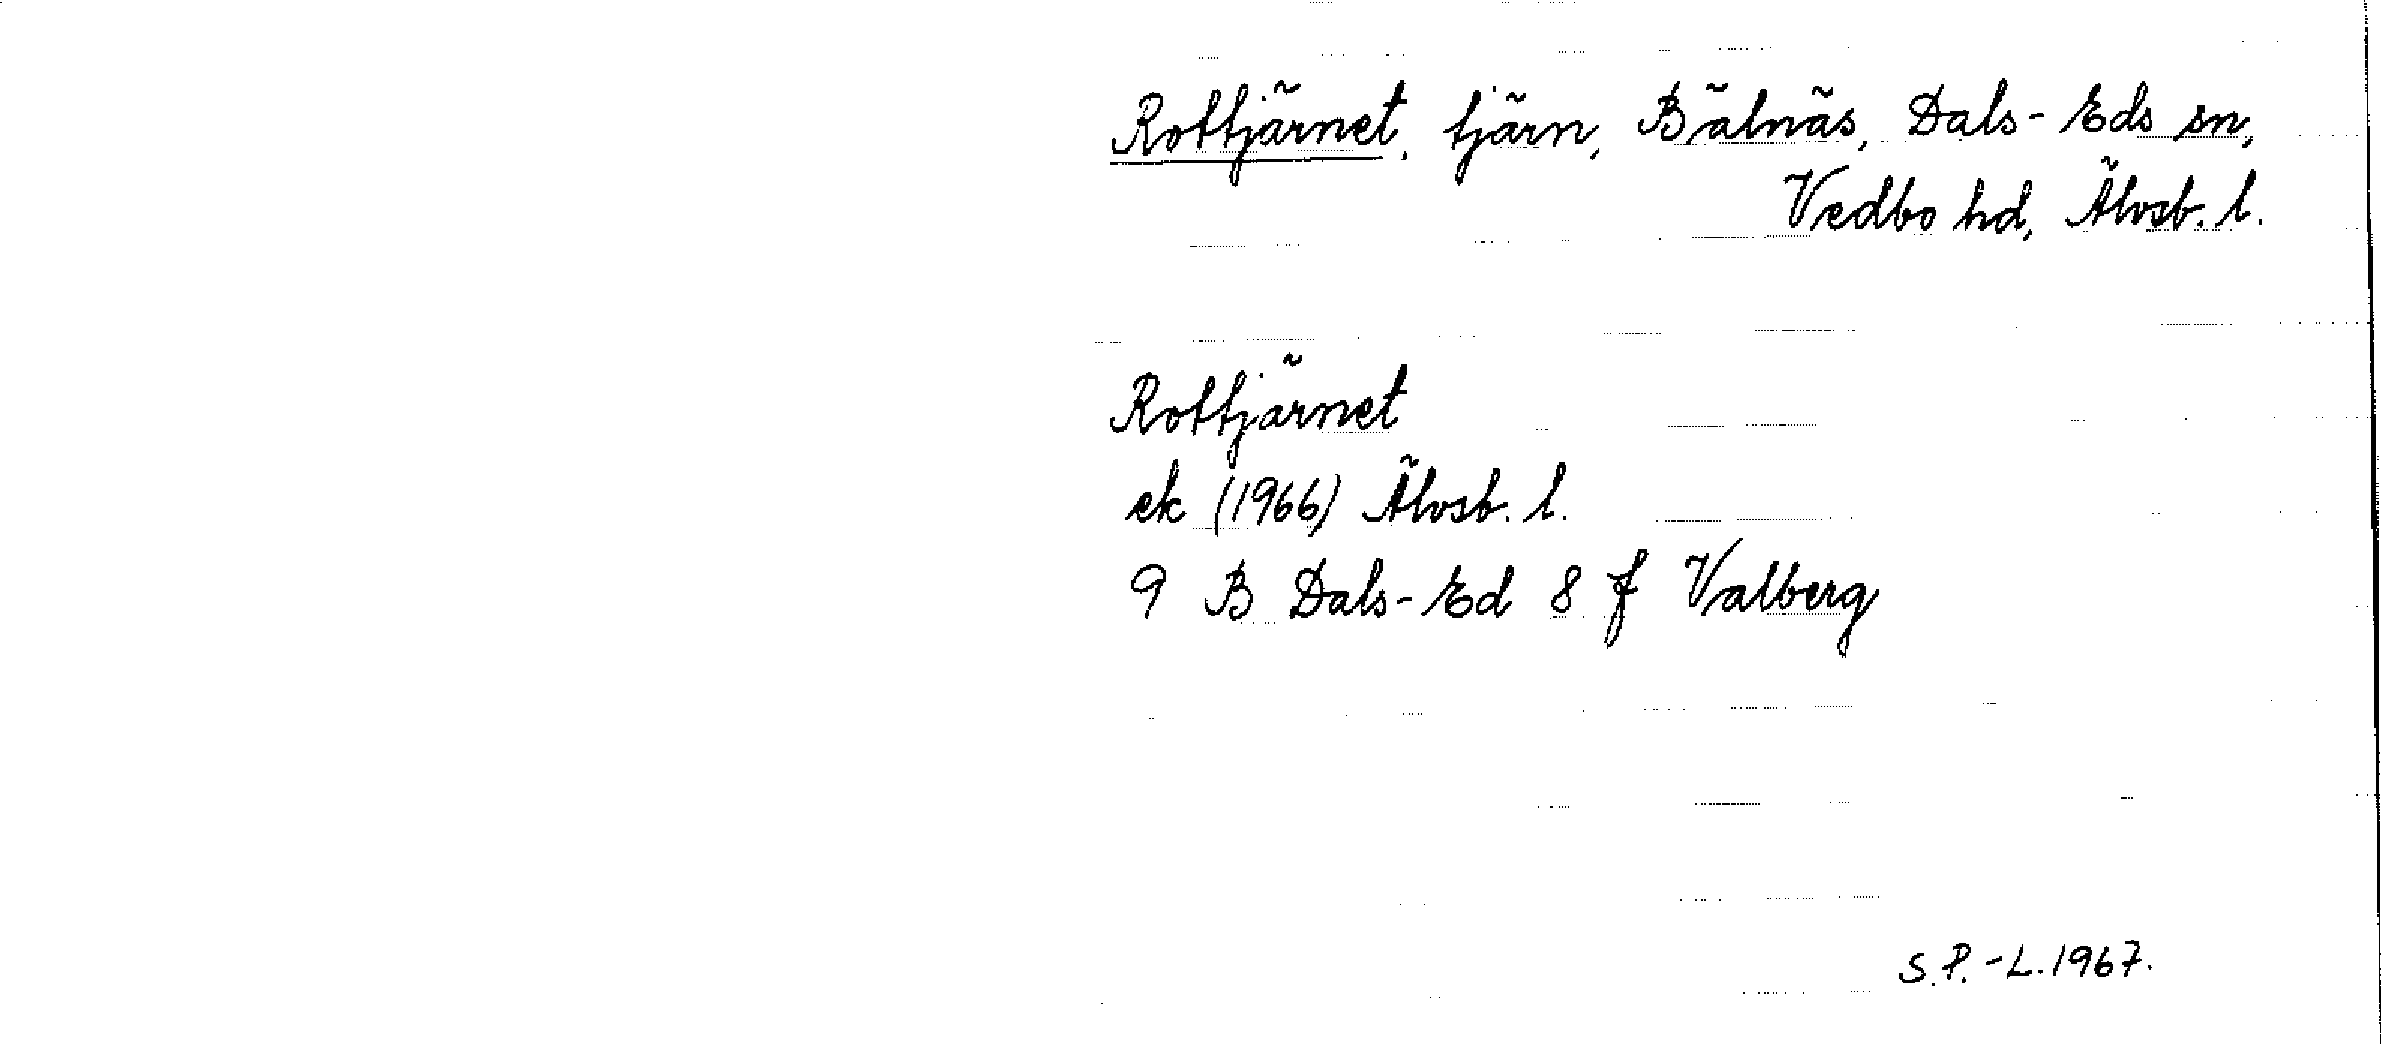 Rottjärnet, tjärn, Bälnäs, Dals-Eds sn,
Vedbo hd, Älvsb. l.
Rottjärnet
ek (1966) Älvsb. l.
9 B Dals-Ed 8 f Valberg
S.P.-L. 1967.